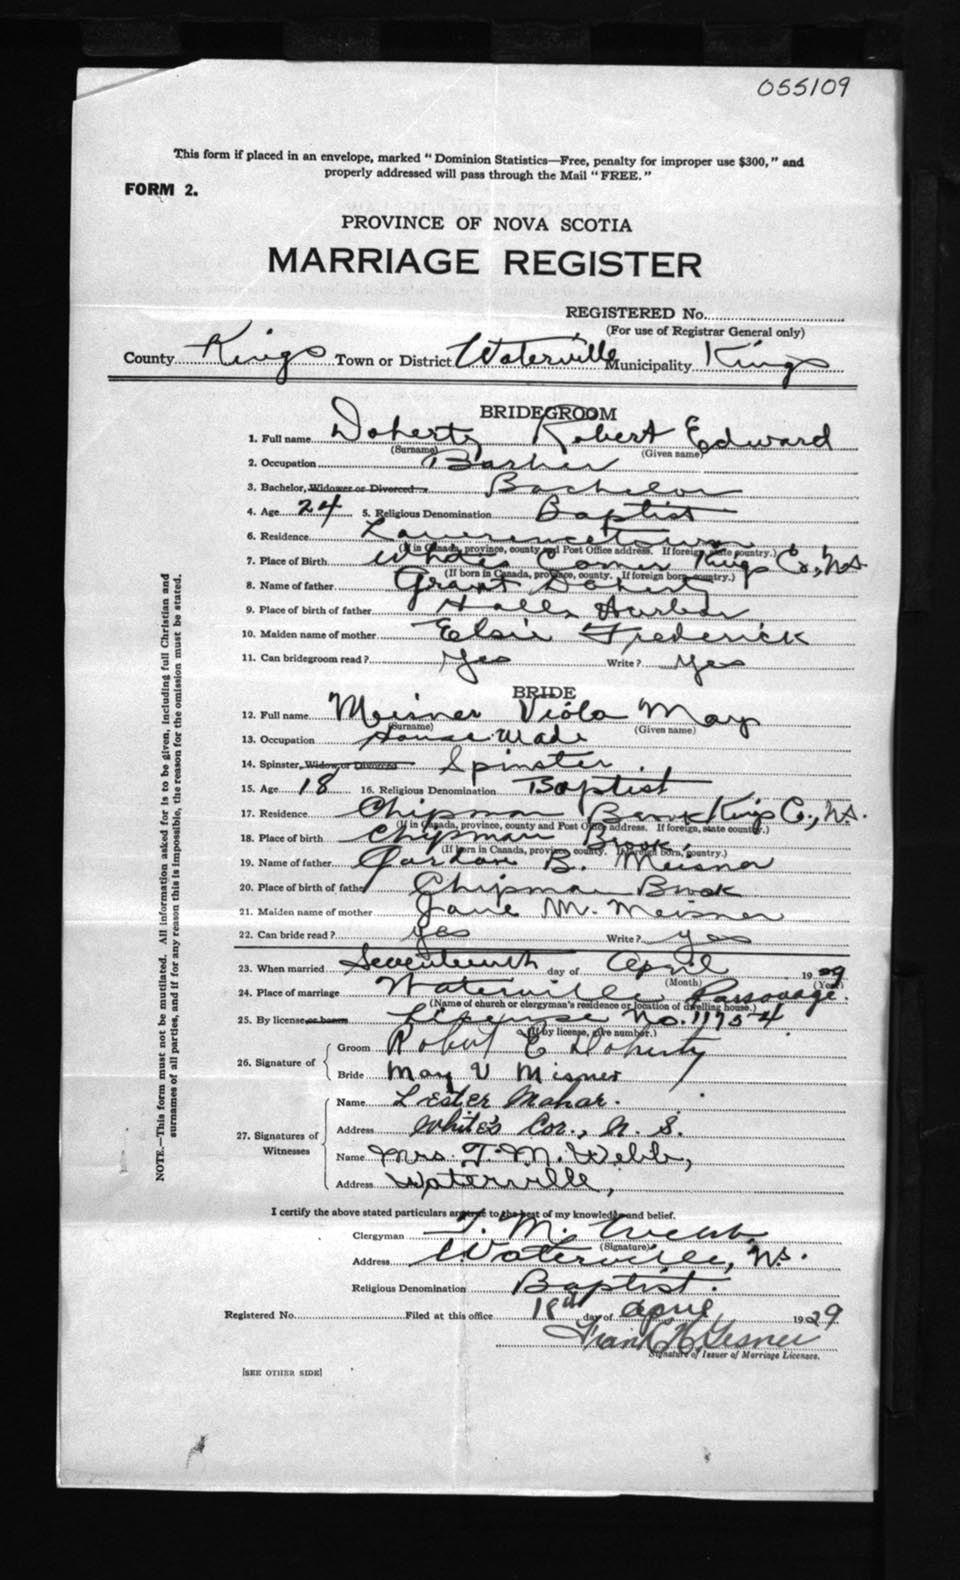 055109
This form if placed in an envelope, marked "Dominion Statistics—Free, penalty for improper use $300," and
properly addressed will pass through the Mail "FREE."
FORM 2.
PROVINCE OF NOVA SCOTIA
MARRIAGE REGISTER
REGISTERED No.
(For use of Registrar General only)
County Kings Town or District Waterville Municipality Kings
BRIDEGROOM
1. Full name Doherty Robert Edward
(Surname) (Given name)
2. Occupation
3. Bachelor, Widower or Divorced Bachelor
4. Age 24 5. Religious Denomination Baptist
6. Residence Lawrencetown
(If in Canada, province, county and Post Office address. If foreign, state country.)
7. Place of Birth Whites Corner Kings Co., N.S.
(If born in Canada, province, county. If foreign born, country.)
8. Name of father Grant Doherty
9. Place of birth of father Halls Harbor
10. Maiden name of mother Elsie Frederick
11. Can bridegroom read? Yes Write? Yes
BRIDE
12. Full name Meisner Viola May
(Surname) (Given name)
13. Occupation House Made
14. Spinster, Widow, or Divorced Spinster
15. Age 18 16. Religious Denomination Baptist
17. Residence Chipman Brook Kings Co., N.S.
(If in Canada, province, county and Post Office address. If foreign, state country.)
18. Place of birth Chipman Brook,
(If born in Canada, province, county. If foreign born, country.)
19. Name of father Gordon B. Meisner
20. Place of birth of father Chipman Brook
21. Maiden name of mother Jane M. Meisner
22. Can bride read? Yes Write? Yes
23. When married Seventeenth day of April 1929
(Month) (Year)
24. Place of marriage Waterville Parsonage.
(Name of church or clergyman's residence or location of dwelling house.)
25. By license or banns License No. 11954
(If by license, give number.)
26. Signature of Groom Robert E Doherty
Bride May V Misner
27. Signatures of Witnesses Name Lester Mahar.
Address White's Cor., N. S.
Name Mrs. T. M. Webb,
Address Waterville,
I certify the above stated particulars are true to the best of my knowledge and belief.
Clergyman T. M. Webb
(Signature)
Address Waterville, N.S.
Religious Denomination Baptist.
Registered No. Filed at this office 18th day of April 1929
Frank H. Gesner
Signature of Issuer of Marriage Licenses.
[SEE OTHER SIDE]
NOTE.—This form must not be mutilated. All information asked for is to be given, including full Christian and
surnames of all parties, and if for any reason this is impossible, the reason for the omission must be stated.